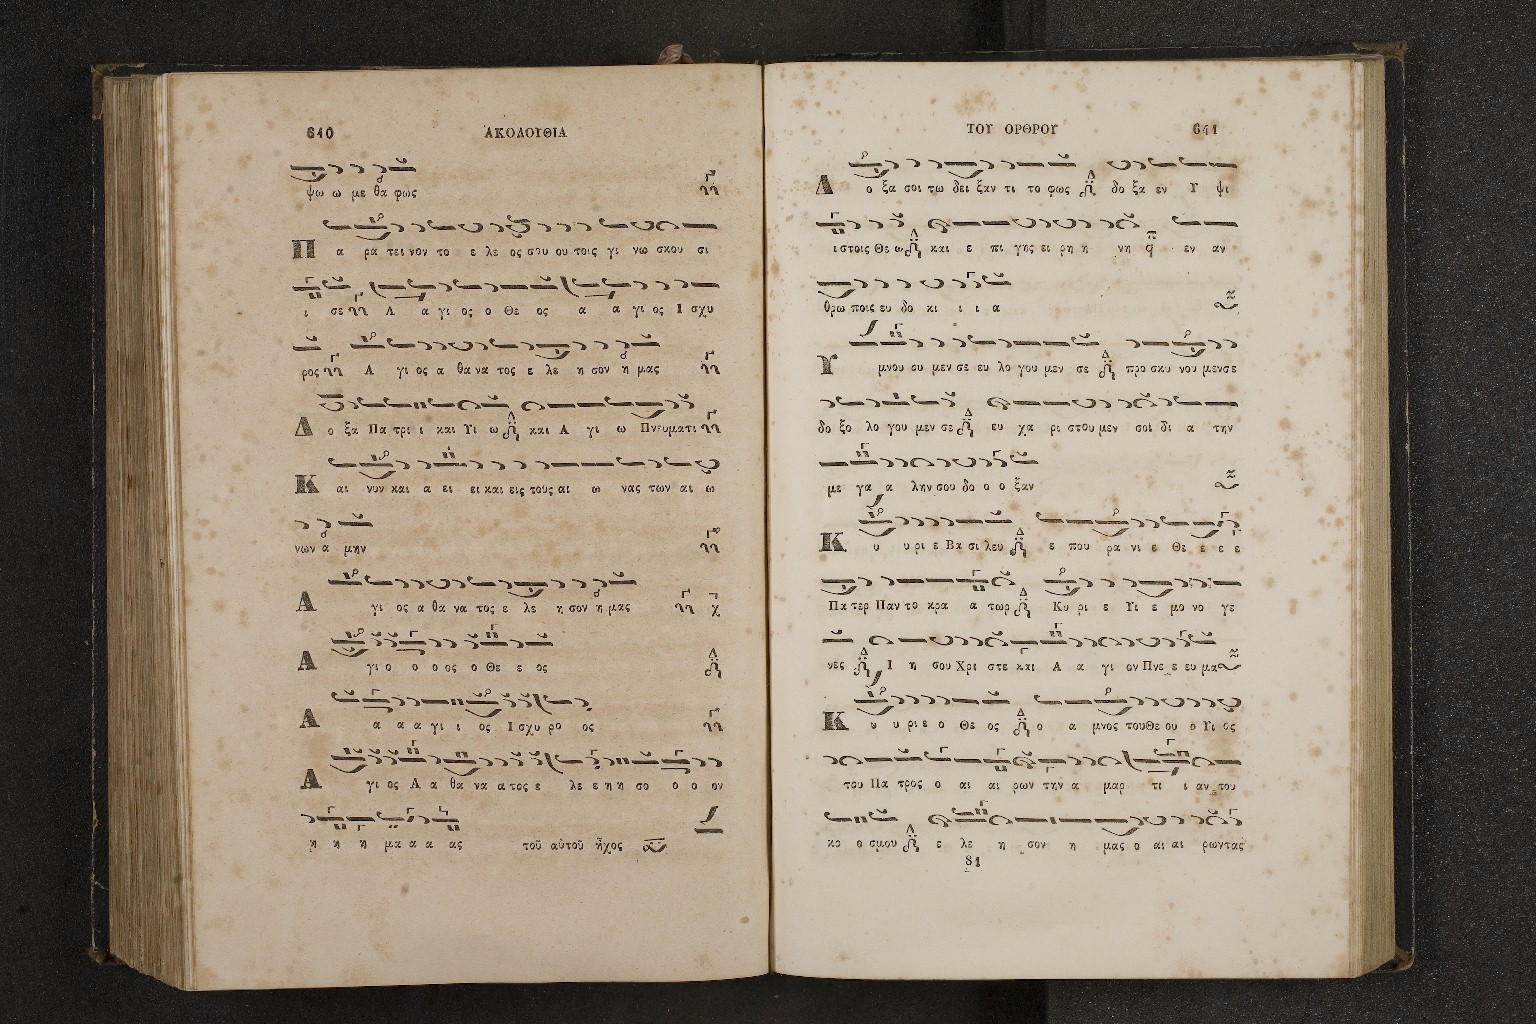 640 ΑΚΟΛΟΥΘΙΑ
ψω ω με θα φως
Π α ρα τει νον το ε λε ος σου ου τοις γι νω σκου σι
ι σε Α α γι ος ο Θε ος α α γι ος Ι σχυ
ρος Α γι ος α θα να τος ε λε η σον η μας
Δ ο ξα Πα τρι ι και Υι ω και Α γι ω Πνευματι
Κ αι νυν και α ει ει και εις τους αι ω νας των αι ω
νων α μην
Α γι ος α θα να τος ε λε η σον η μας
Α γι ο ο ο ος ο Θε ε ος
Α α α α γι ι ος Ι σχυ ρο ος
Α γι ος Α α θα να α τος ε λε ε η η σο ο ο ον
η η η μα α α ας τοῦ αὐτοῦ ἦχος
ΤΟΥ ΟΡΘΡΟΥ 641
Δ ο ξα σοι τω δει ξαν τι το φως δο ξα εν Υ ψι
ι στοις Θε ω και ε πι γης ει ρη η νη εν αν
θρω ποις ευ δο κι ι ι α
Υ μνου ου μεν σε ευ λο γου μεν σε προ σκυ νου μεν σε
δο ξο λο γου μεν σε ευ χα ρι στου μεν σοι δι α την
με γα α λην σου δο ο ο ξαν
Κ υ υ ρι ε Βα σι λευ ε που ρα νι ε Θε ε ε ε
Πα τερ Παν το κρα α τωρ Κυ ρι ε Υι ε μο νο γε
νες Ι η σου Χρι στε και Α α γι ον Πνε ε ευ μα
Κ υ υ ρι ε ο Θε ος ο α μνος του Θε ου ο Υι ος
του Πα τρος ο αι αι ρων την α μαρ τι ι αν του
κο ο σμου ε λε η σον η μας ο αι αι ρωντας
81